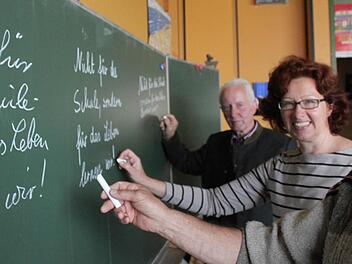 für
ule-
s Leben
wir!
Nicht für die
Schule sondern
für das Leben
lernen wir!
Nicht für die Schule
sondern für das